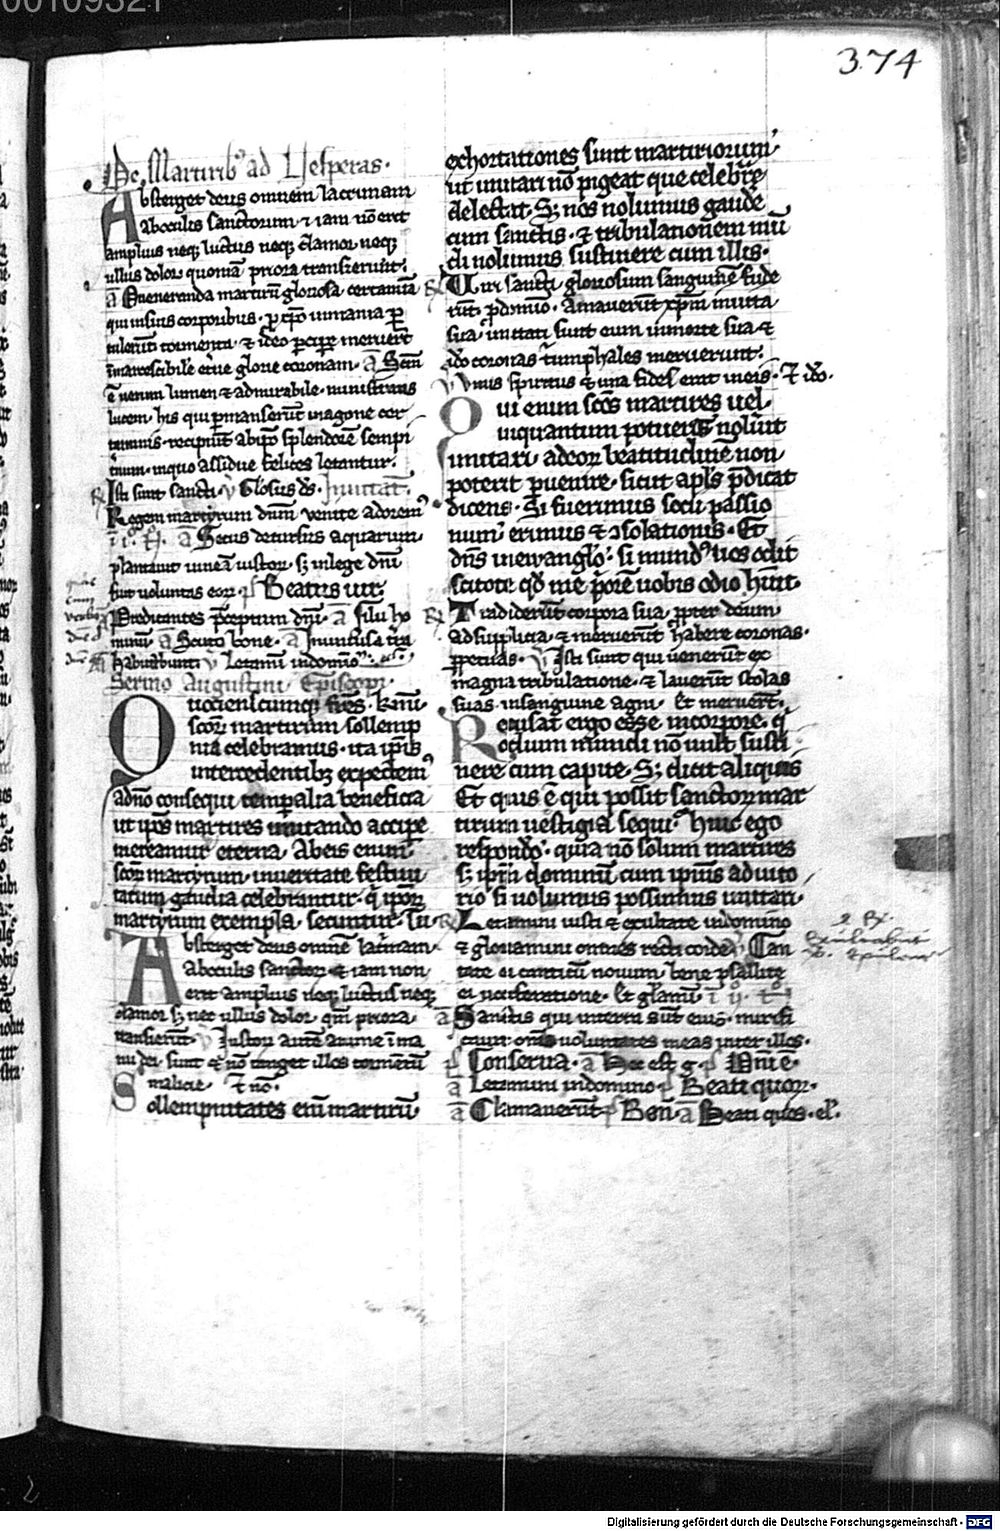 00109321
374
De Martirib' ad Uesperas.
Absterget deus omnem lacrimam
ab oculis sanctorum ⁊ iam nō erit
amplius neq; luctus neq; clamor neq;
ullus dolor quoniā priora transierunt.
qui in suis corporibus
tulerūt tormenta ⁊ ideo p̄cipe meruerūt
glorie coronam. a Scm̄
ē uerum lumen ⁊ admirabile. ministrans
lucem. his qui p̄manserūt in agone cer
taminis. recipiūt ab ip̄o splendorē sempi
t̄num. in quo assidue felices letantur.
R Isti sunt sancti. v Glosus ds. Inuitat̄.
Regem martyrum dn̄m uenite adorem'
a Secus decursus aquarum.
plantauit uineā iustor. s; in lege dn̄i
fuit uoluntas eor. p Beatus uir.
Predicantes p̄ceptum dn̄i. a Filii ho
minū. a Scuto bone. a
habitabunt v Letamī in domino
Sermo Augustini Episcopi.
Quociescumq; fr̄es. k̄mi.
scōr martirum sollemp
nia celebramus. ita ip̄is
intercedentib; expectem'
a dn̄o consequi temp̄alia beneficia
ut ip̄os martires imitando accipe
mereamur eterna. Ab eis enim
scōr martyrum. in ueritate festiui
tatum gaudia celebrantur. q̄ ip̄or
martyrum exempla. secuntur. Tu
Absterget deus omnē lac̄mam.
ab oculis sanctor ⁊ iam non
erit amplius neq; luctus neq;
clamor s; nec ullus dolor. qm̄ priora.
transierūt. v Iustor autē anime ī ma
nu dei. sunt ⁊ nō tanget illos tormētū
malicie. ⁊ nō.
Sollempnitates eni martirū
exhortationes sunt martiriorum.
ut imitari nō pigeat que celebr̄e
delectat. S; nos nolumus gaud̄e
cum sanctis. ⁊ tribulationem mū
di nolumus sustinere cum illis.
R Uiri sancti gloriosum sanguinē fude
rūt p̄ dn̄o. amauerūt xp̄m in uita
sua. imitati sunt eum in morte sua ⁊
ido coronas t̄umphales meruerunt.
v Unus spiritus ⁊ una fides erat in eis. ⁊ ido.
Qui enim scōs martires uel.
in quantum potuerīt noluīt
imitari. ad eor beatitudinē non.
poterit p̄uenire. sicut apl̄s p̄dicat
dicens. Si fuerimus socii passio
num. erimus ⁊ ɔsolationis. Et
dn̄s in ewanglo. si mund' uos odit
scitote qd me p̄orē uobis odio hūit.
R Tradiderūt corpora sua. p̄pter deum
ad supplicia. ⁊ meruerūt habere coronas.
p̄petuas. v Isti sunt qui uenerūt ex
magna tribulatione. ⁊ lauerūt stolas
suas. in sanguine agni. Et meruert̄.
Recusat ergo esse in corpore. q̄
odium mundi nō uult susti
nere cum capite. S; dicit aliquis
Et quis ē qui possit sanctor mar
tirum uestigia sequi. huic ego
respondo. quia nō solum martires
s; ip̄m dominū cum ip̄ius adiuto
rio si uolumus possumus imitari.
R Letamini iusti ⁊ exultate in domino
⁊ gloriamini omnes recti corde. v Can
tate ei canticū nouum. bene psallite
ei in uociferatione. Et gl̄amī.
a Sanctis qui in terra sūt eius. mirifi
cauit omēs uoluntates meas inter illos.
p Conserua. a Hec est g. p Dn̄i ē.
a Letamini in domino p Beati quor.
a Clamauerūt. p Ben. a Beati quos. el'.
Digitalisierung gefördert durch die Deutsche Forschungsgemeinschaft - DFG